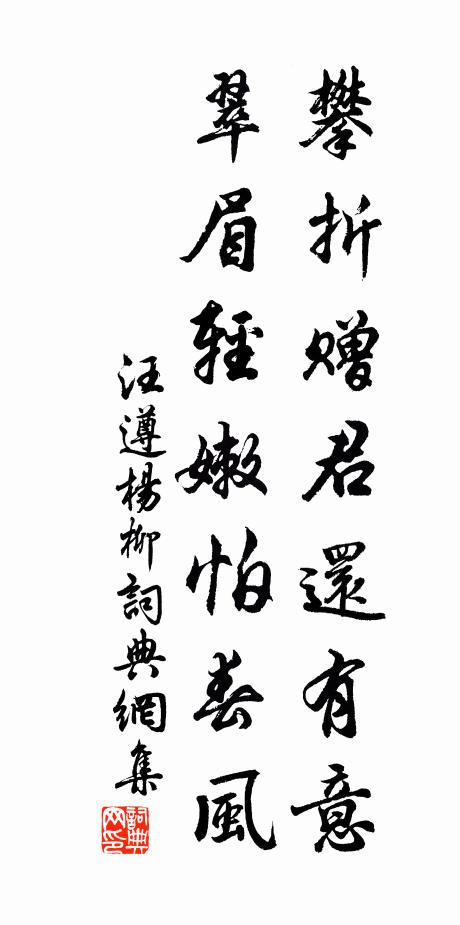 攀折贈君還有意
翠眉輕嫩怕春風
汪遵楊柳詞典網集
詞典
网印